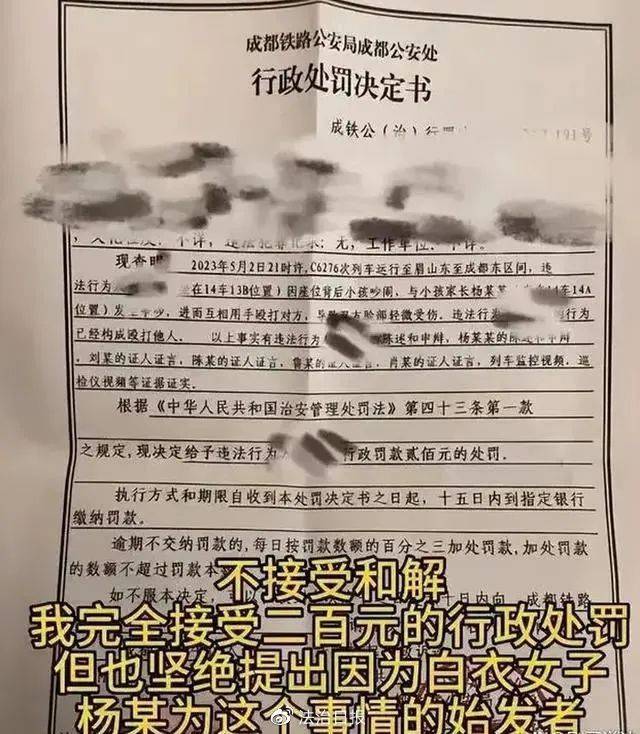 成都铁路公安局成都公安处
行政处罚决定书
成铁公（治）行罚 191号
不详，违法犯罪记录：无，工作单位：不详。
现查明 2023年5月2日21时许，C6276次列车运行至眉山东至成都东区间，违
法行为 坐在14车13B位置）因座位背后小孩吵闹，与小孩家长杨某某 14车14A
位置）发生争吵，进而互相用手殴打对方，导致双方脸部轻微受伤。违法行为 的行为
已经构成殴打他人。 以上事实有违法行为 陈述和申辩，杨某某的陈述和申辩，
刘某的证人证言，陈某的证人证言，鲁某的证人证言，肖某的证人证言，列车监控视频，巡
检仪视频等证据证实.
根据《中华人民共和国治安管理处罚法》第四十三条第一款
之规定，现决定给予违法行为 行政罚款贰佰元的处罚.
执行方式和期限自收到本处罚决定书之日起，十五日内到指定银行
缴纳罚款.
逾期不交纳罚款的，每日按罚款数额的百分之三加处罚款，加处罚款
的数额不超过罚款本
如不服本决定，可以 十日内向 成都铁路
不接受和解
我完全接受二百元的行政处罚
但也坚绝提出因为白衣女子
杨某为这个事情的始发者
法治日报